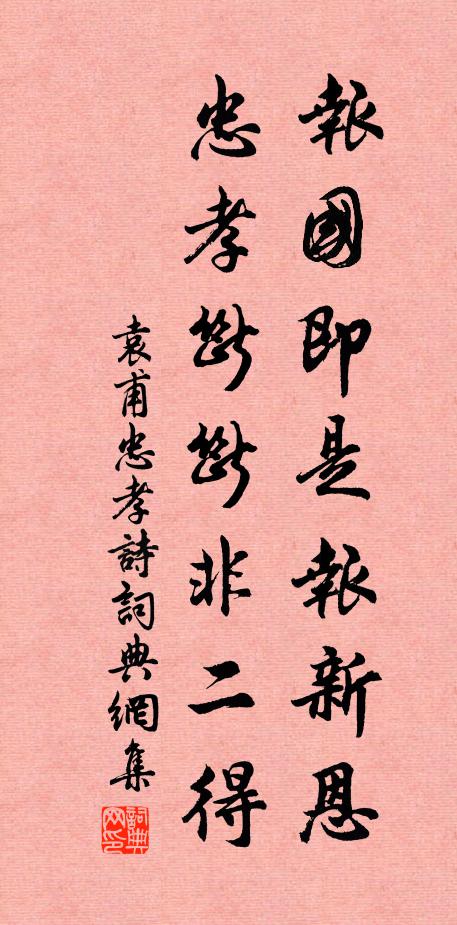 報國即是報新恩
忠孝斷斷非二得
袁甫忠孝詩詞典網集
詞典网印